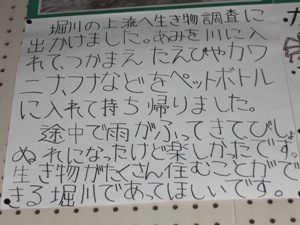 堀川の上流へ生き物調査に
出かけました。あみを川に入
れて、つかまえたえびやカワ
ニナ、フナなどをペットボトル
に入れて持ち帰りました。
途中で雨がふってきて、びしょ
ぬれになったけど楽しかたです。
生き物がたくさん住むことがで
きる堀川であってほしいです。